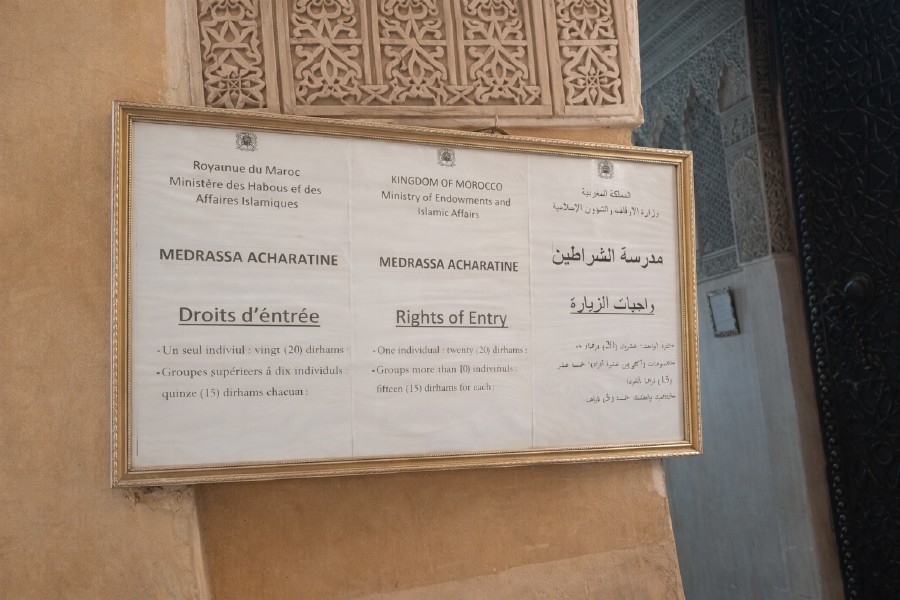 Royatnue du Maroc
Ministère des Habous et des
Affaires Islamiques
MEDRASSA ACHARATINE
Droits d'éntrée
-Un seul indiviul : vingt (20) dirhams :
-Groupes supériecrs à dix individuls :
quinze (15) dirhams chacuat :
KINGDOM OF MOROCCO
Ministry of Endowments and
Islamic Affairs
MEDRASSA ACHARATINE
Rights of Entry
-One individual : twenty (20) dirhams :
-Groups more than I0) indivinuls :
fifteen (15) dirhams for each :
المملكة المغربية
وزارة الاوقاف والشؤون الإسلامية
مدرسة الشراطين
واجبات الزيارة
(20)
خمسة عشر
(15)
خمسة (5)